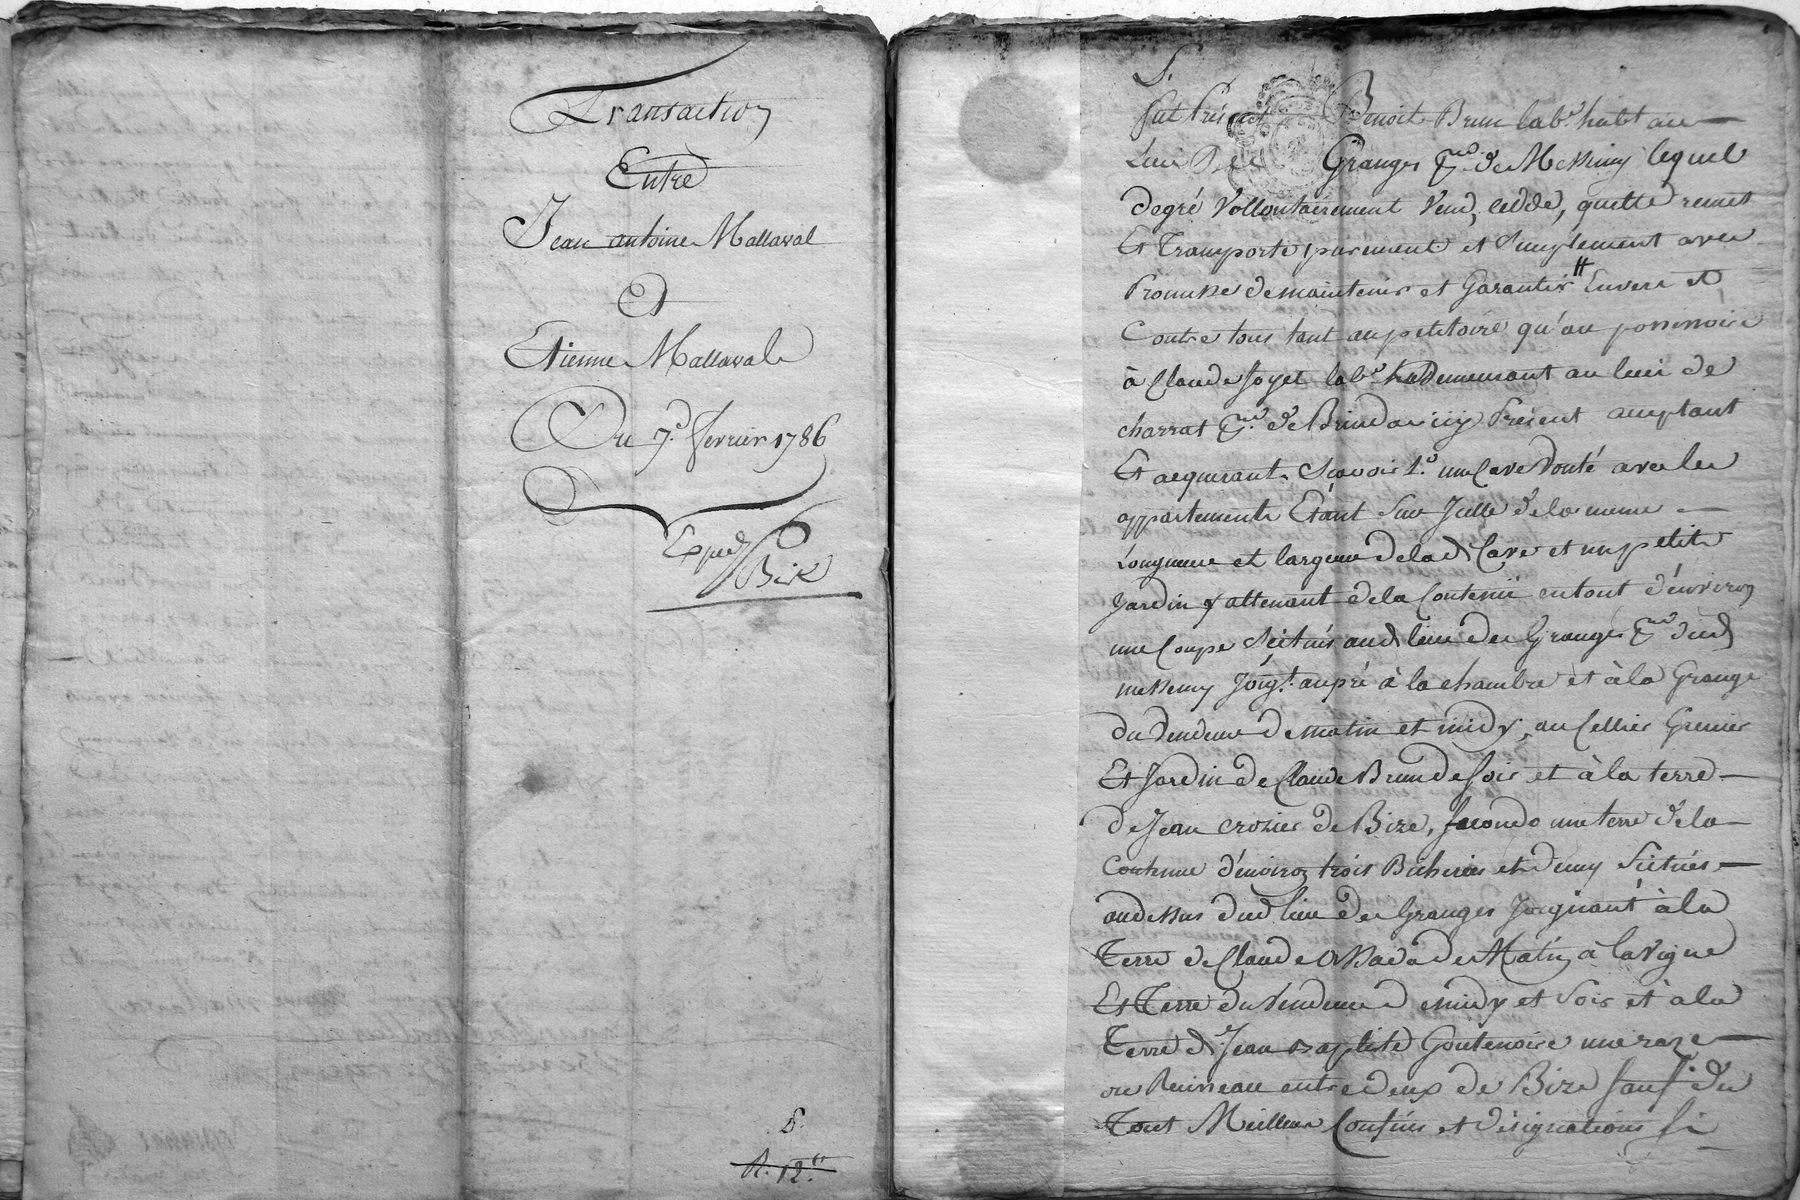 Transaction
Entre
Jean antoine Mallaval
Et
Etienne Mallaval
Du 7.e fevrier 1786
Exped
Bik
8.
R. 12.tt
S.
fut Présent Benoit Brun lab.r habitant
Lieu Granges de Messimy lequel
degré Vollontairement Vend, cedde, quitte remet
Et Transporte purement et Simplement avec
Promesse demaintenir et Garantir Envers et
Contre tous tant aupetitoire qu'au possessoire
à Claude Joyet lab.r demeurant au lieu de
charrat de Brindas icy Présent acceptant
Et acquerant, Scavoir 1.o une Cave Voûté avec les
appartements Etant Sur Icelle dela meme
Longueur et largeur delad Cave et un petit
Jardin y attenant dela Contenüe entout d'environ
une Coupe Scitués aud lieu des Granges dud
messimy Joig.t aupré à la chambre et à la Grange
du Vendeur de matin et midy, au Cellier Grenier
Et Jardin de Claude Brun de soir et à la terre
de Jean crozier de Bize, secondo une terre dela
Contenue d'environ trois Bicherées et demy Scitués
audessus dud lieu des Granges Joignant à la
Terre de Claude de Matin, à la Vigne
Et Terre du Vendeur de midy et Soir et à la
Terre de Jean Baptiste Goutenoire une raze
ou Ruisseau entredeux de Bize Sauf du
Tout Meilleurs Confins et désignations Si